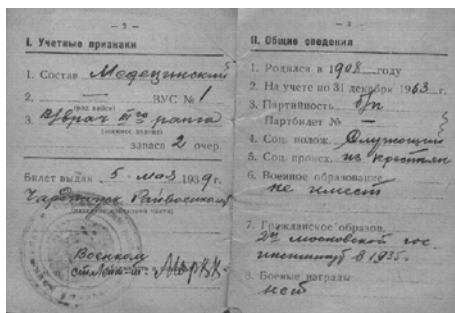 — 2 —
I. Учетные признаки
1. Состав Медецинский
2. ВУС № 1
(род войск)
3. В/врач III го ранга
запаса 2 очер.
Билет выдан 5 - мая 1939 г.
Райвоенкомат
Военком
— 3 —
II. Общие сведения
1. Родился в 1908 году
2. На учете по 31 декабря 1953 г.
3. Партийность б/п
Партбилет № —
4. Соц. полож. Служащий
5. Соц. происх. из крестьян
6. Военное образование
не имеет
7. Гражданское образов.
2й московский гос.
институт в 1935 г.
8. Боевые награды
нет